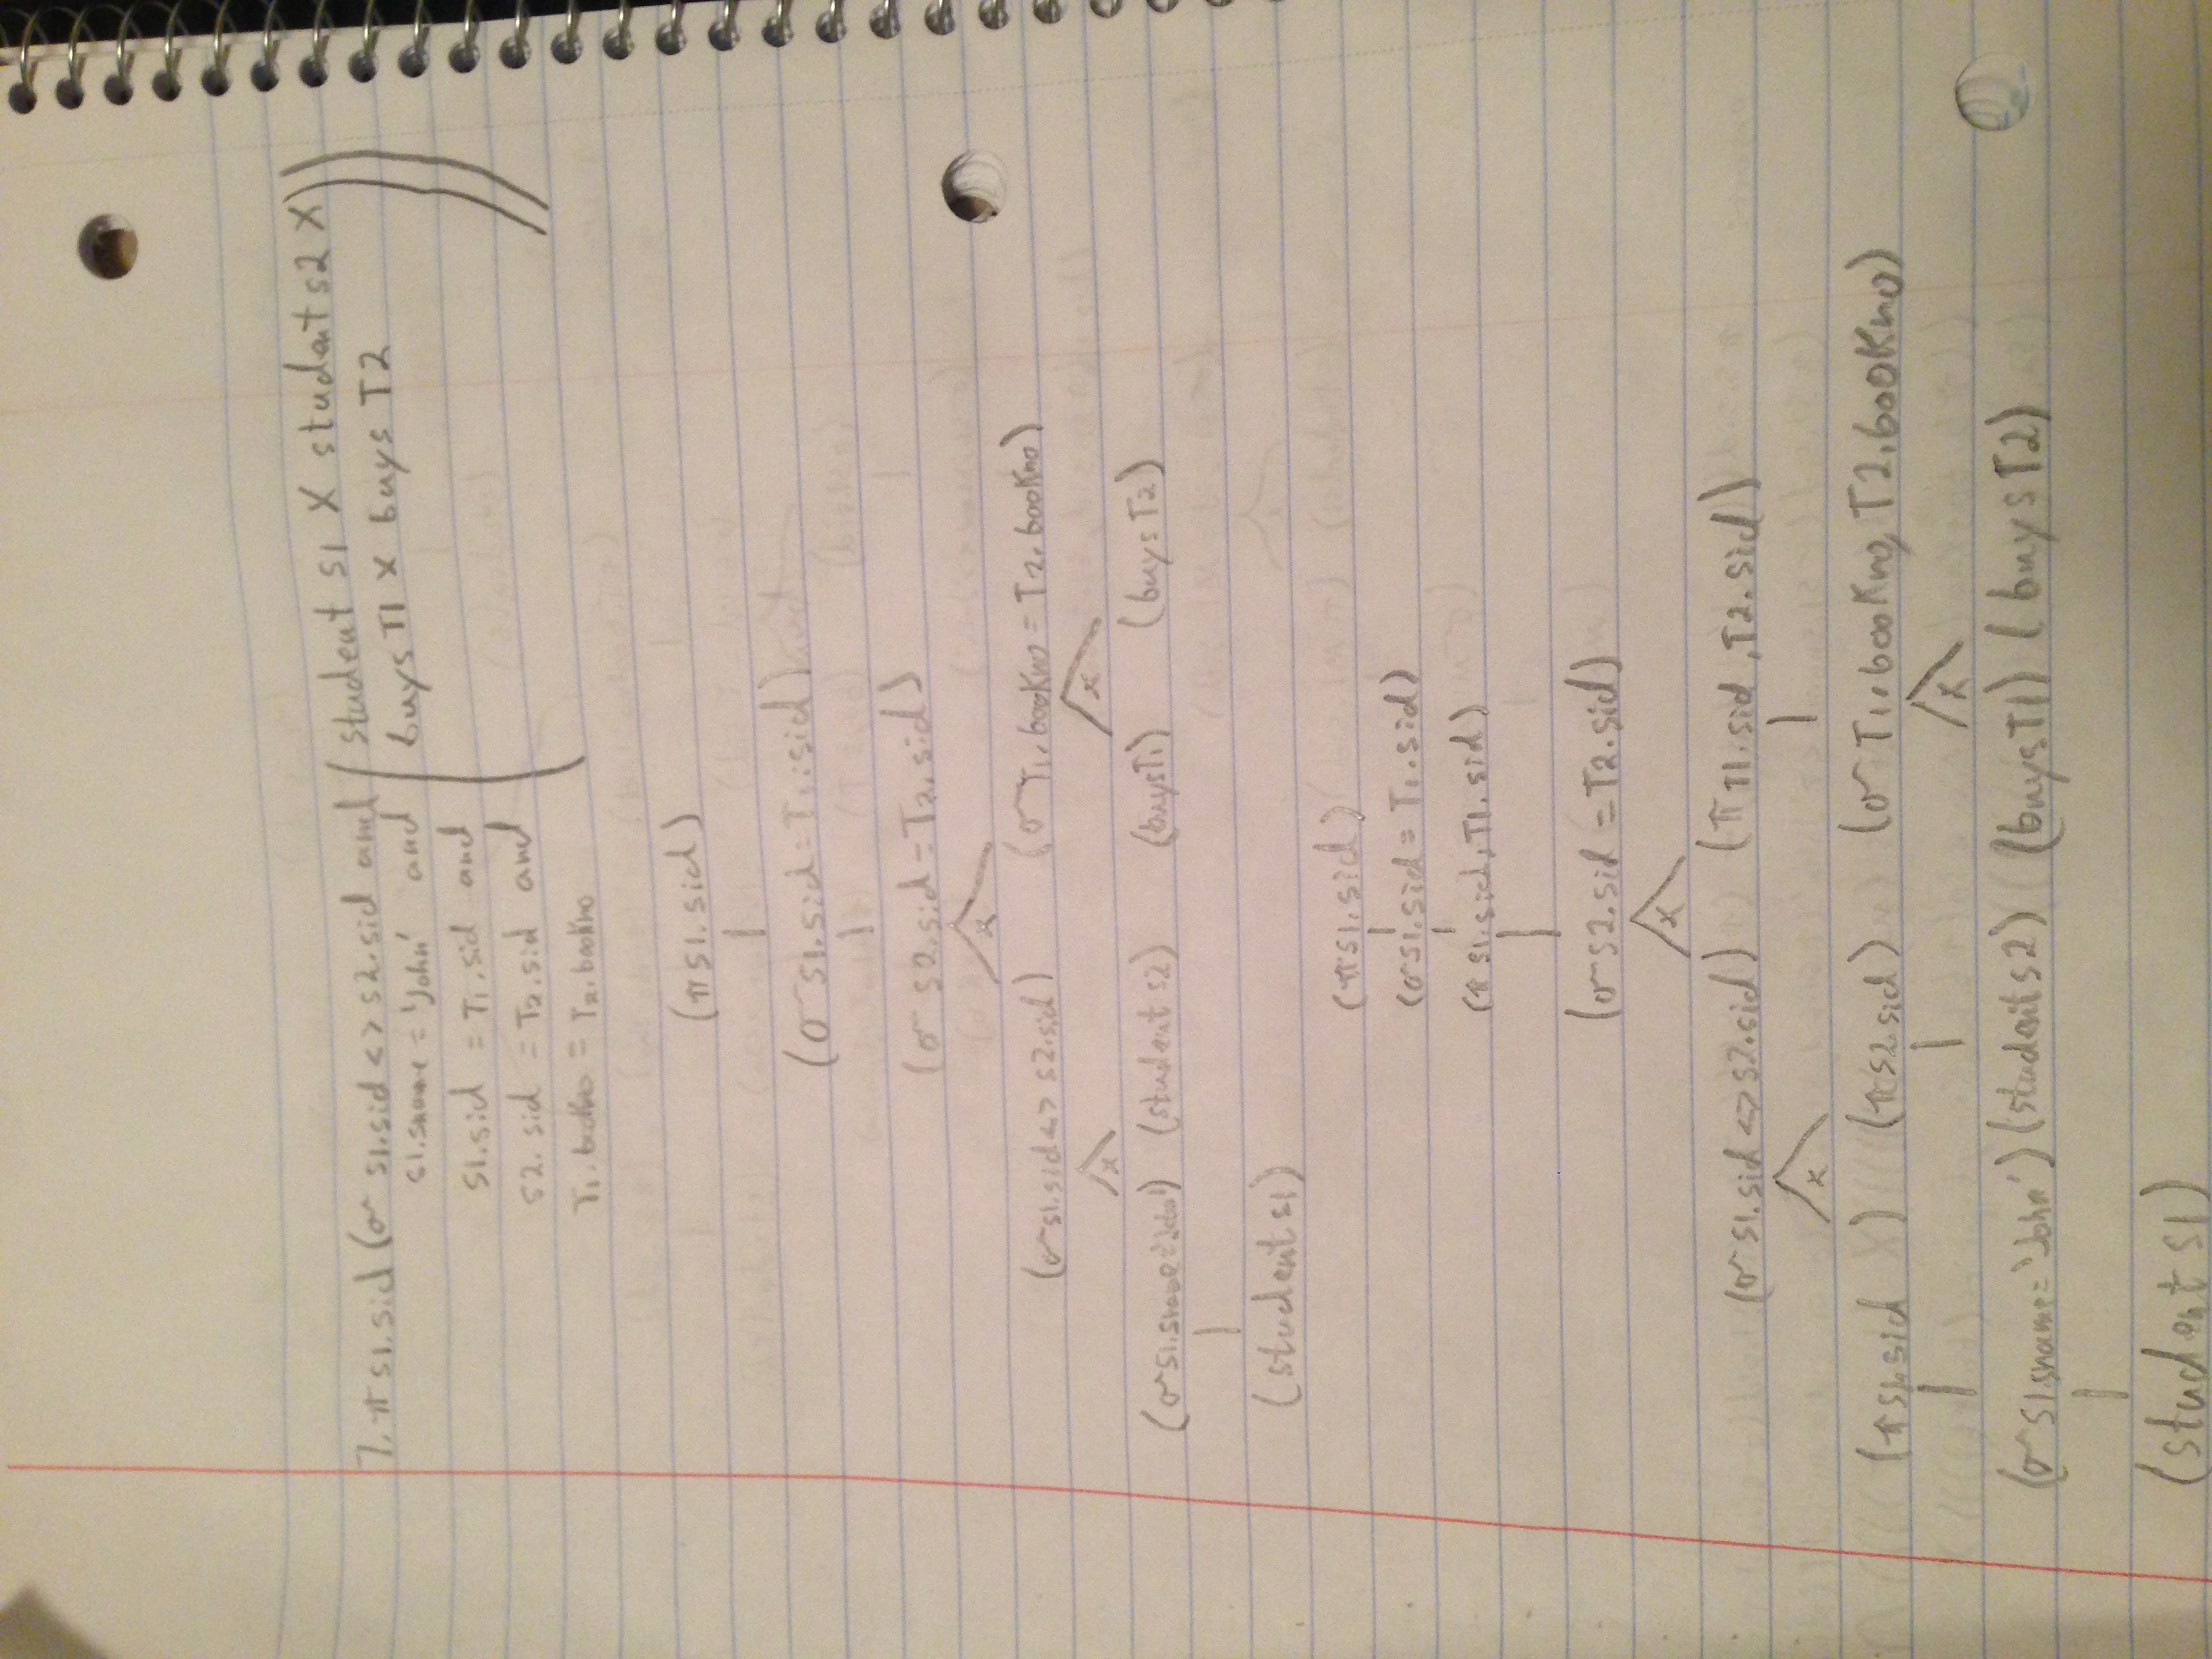 7. π s1.sid (σ s1.sid <> s2.sid and (student s1 X student s2 X))
s1.sname = 'John' and buys T1 x buys T2
s1.sid = T1.sid and
s2.sid = T2.sid and
T1.bookno = T2.bookno
(π s1.sid)
(σ s1.sid = T1.sid)
(σ s2.sid = T2.sid)
x
(σ s1.sid <> s2.sid) (σ T1.bookno = T2.bookno)
x x
(σ s1.sname = 'John') (student s2) (buys T1) (buys T2)
(student s1)
(π s1.sid)
(σ s1.sid = T1.sid)
(π s1.sid, T1.sid)
(σ s2.sid = T2.sid)
x
(σ s1.sid <> s2.sid) (π T1.sid, T2.sid)
x
(π s1.sid ) (π s2.sid) (σ T1.bookno, T2.bookno)
x
(σ s1.sname = 'John') (student s2) (buys T1) (buys T2)
(student s1)